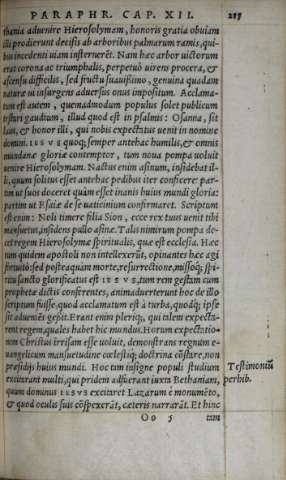 PARAPHR. CAP. XII. 217
thania aduenire Hierosolymam, honoris gratia obuiam
illi prodierunt decisis ab arboribus palmarum ramis, qui-
bus incedenti uiam insternerēt. Nam hæc arbor uictorum
erat corona ac triumphalis, perpetuò uirens procera, &
ascensu difficilis, sed fructu suauissimo, genuina quadam
naturæ ui insurgens aduersus onus impositum. Acclama-
tum est autem, quemadmodum populus solet publicum
gaudium, illud quod est in psalmis: Osanna, sit
laus, & honor illi, qui nobis expectatus uenit in nomine
domini. IESVS quoq; semper antehac humilis, & omnis
mundanæ gloriæ contemptor, tum noua pompa uoluit
uenire Hierosolymam. Nactus enim asinum, insidebat il-
li, quum solitus esset antehac pedibus iter conficere: par-
tim ut suos doceret quàm esset inanis huius mundi gloria:
partim ut Esaiæ de se uaticinium confirmaret. Scriptum
est enim: Noli timere filia Sion, ecce rex tuus uenit tibi
mansuetus, insidens pullo asinæ. Talis nimirum pompa de-
cet regem Hierosolymæ spiritualis, quæ est ecclesia. Hæc
tum quidem apostoli non intellexerūt, opinantes hæc agi
fortuitò: sed posteaquàm morte, resurrectione, missoq; spi-
ritu sancto glorificatus est IESVS, tum rem gestam cum
prophetæ dictis conferentes, animaduerterunt hoc de illo
scriptum fuisse, quod acclamatum est à turba, quodq; ipse
sic aduenēs gessit. Erant enim pleriq;, qui talem expecta-
rent regem, quales habet hic mundus. Horum expectatio-
nem Christus irrisam esse uoluit, demonstrans regnum e-
uangelicum mansuetudine cœlestiq; doctrina cōstare, non
præsidijs huius mundi. Hoc tam insigne populi studium
excitarant multi, qui pridem adfuerant iuxta Bethaniam,
quum dominus IESVS excitaret Lazarum è monumēto,
& quod oculis suis cōspexerāt, cæteris narrarāt. Et hinc
Testimoniū
perhib.
Oo 5 tam